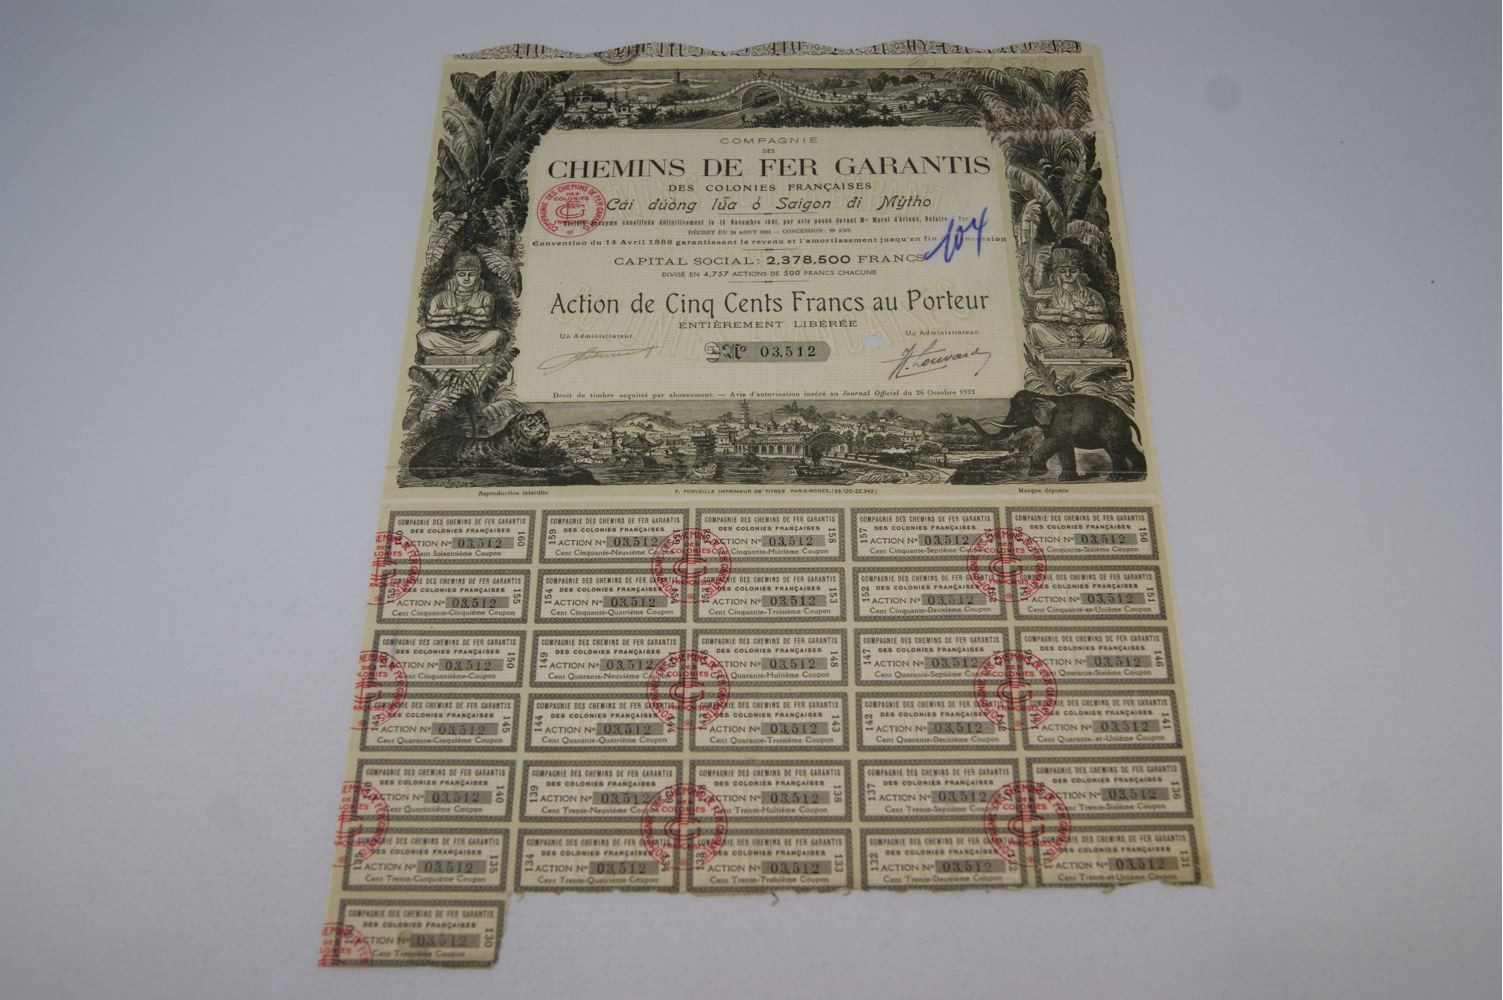 COMPAGNIE
DES
CHEMINS DE FER GARANTIS
DES COLONIES FRANÇAISES
Cái dường lửa ở Saigon đi Mỹtho
Société Anonyme constituée définitivement le 15 Novembre 1881, par acte passé devant Me Morel d'Arleux, Notaire
DÉCRET DU 24 AOUT 1881 — CONCESSION: 99 ANS
Convention du 14 Avril 1888 garantissant le revenu et l'amortissement jusqu'en fin concession
104
CAPITAL SOCIAL: 2,378,500 FRANCS
DIVISÉ EN 4,757 ACTIONS DE 500 FRANCS CHACUNE
Action de Cinq Cents Francs au Porteur
ENTIÈREMENT LIBÉRÉE
Un Administrateur. Un Administrateur.
No 03,512
Droit de timbre acquitté par abonnement. — Avis d'autorisation inséré au Journal Officiel du 26 Octobre 1921
Reproduction interdite P. FORVEILLE IMPRIMEUR DE TITRES PARIS-RODEZ. (55,120-22,942) Marque déposée
COMPAGNIE DES CHEMINS DE FER GARANTIS COMPAGNIE DES CHEMINS DE FER GARANTIS COMPAGNIE DES CHEMINS DE FER GARANTIS COMPAGNIE DES CHEMINS DE FER GARANTIS COMPAGNIE DES CHEMINS DE FER GARANTIS
DES COLONIES FRANÇAISES DES COLONIES FRANÇAISES DES COLONIES FRANÇAISES DES COLONIES FRANÇAISES DES COLONIES FRANÇAISES
ACTION No 03,512 160 159 ACTION No 03,512 ACTION No 03,512 158 157 ACTION No 03,512 ACTION No 03,512 156
Cent Soixantième Coupon Cent Cinquante-Neuvième Coupon Cent Cinquante-Huitième Coupon Cent Cinquante-Septième Coupon Cent Cinquante-Sixième Coupon
COMPAGNIE DES CHEMINS DE FER GARANTIS COMPAGNIE DES CHEMINS DE FER GARANTIS COMPAGNIE DES CHEMINS DE FER GARANTIS COMPAGNIE DES CHEMINS DE FER GARANTIS COMPAGNIE DES CHEMINS DE FER GARANTIS
DES COLONIES FRANÇAISES DES COLONIES FRANÇAISES DES COLONIES FRANÇAISES DES COLONIES FRANÇAISES DES COLONIES FRANÇAISES
155 ACTION No 03,512 155 154 ACTION No 03,512 ACTION No 03,512 153 152 ACTION No 03,512 ACTION No 03,512 151
Cent Cinquante-Cinquième Coupon Cent Cinquante-Quatrième Coupon Cent Cinquante-Troisième Coupon Cent Cinquante-Deuxième Coupon Cent Cinquante-et-Unième Coupon
COMPAGNIE DES CHEMINS DE FER GARANTIS COMPAGNIE DES CHEMINS DE FER GARANTIS COMPAGNIE DES CHEMINS DE FER GARANTIS COMPAGNIE DES CHEMINS DE FER GARANTIS COMPAGNIE DES CHEMINS DE FER GARANTIS
DES COLONIES FRANÇAISES DES COLONIES FRANÇAISES DES COLONIES FRANÇAISES DES COLONIES FRANÇAISES DES COLONIES FRANÇAISES
ACTION No 03,512 150 149 ACTION No 03,512 ACTION No 03,512 148 147 ACTION No 03,512 ACTION No 03,512 146
Cent Cinquantième Coupon Cent Quarante-Neuvième Coupon Cent Quarante-Huitième Coupon Cent Quarante-Septième Coupon Cent Quarante-Sixième Coupon
COMPAGNIE DES CHEMINS DE FER GARANTIS COMPAGNIE DES CHEMINS DE FER GARANTIS COMPAGNIE DES CHEMINS DE FER GARANTIS COMPAGNIE DES CHEMINS DE FER GARANTIS COMPAGNIE DES CHEMINS DE FER GARANTIS
DES COLONIES FRANÇAISES DES COLONIES FRANÇAISES DES COLONIES FRANÇAISES DES COLONIES FRANÇAISES DES COLONIES FRANÇAISES
145 ACTION No 03,512 145 144 ACTION No 03,512 ACTION No 03,512 143 142 ACTION No 03,512 ACTION No 03,512 141
Cent Quarante-Cinquième Coupon Cent Quarante-Quatrième Coupon Cent Quarante-Troisième Coupon Cent Quarante-Deuxième Coupon Cent Quarante-et-Unième Coupon
COMPAGNIE DES CHEMINS DE FER GARANTIS COMPAGNIE DES CHEMINS DE FER GARANTIS COMPAGNIE DES CHEMINS DE FER GARANTIS COMPAGNIE DES CHEMINS DE FER GARANTIS COMPAGNIE DES CHEMINS DE FER GARANTIS
DES COLONIES FRANÇAISES DES COLONIES FRANÇAISES DES COLONIES FRANÇAISES DES COLONIES FRANÇAISES DES COLONIES FRANÇAISES
ACTION No 03,512 140 139 ACTION No 03,512 ACTION No 03,512 138 137 ACTION No 03,512 ACTION No 03,512 136
Cent Quarantième Coupon Cent Trente-Neuvième Coupon Cent Trente-Huitième Coupon Cent Trente-Septième Coupon Cent Trente-Sixième Coupon
COMPAGNIE DES CHEMINS DE FER GARANTIS COMPAGNIE DES CHEMINS DE FER GARANTIS COMPAGNIE DES CHEMINS DE FER GARANTIS COMPAGNIE DES CHEMINS DE FER GARANTIS COMPAGNIE DES CHEMINS DE FER GARANTIS
DES COLONIES FRANÇAISES DES COLONIES FRANÇAISES DES COLONIES FRANÇAISES DES COLONIES FRANÇAISES DES COLONIES FRANÇAISES
ACTION No 03,512 135 134 ACTION No 03,512 ACTION No 03,512 133 132 ACTION No 03,512 ACTION No 03,512 131
Cent Trente-Cinquième Coupon Cent Trente-Quatrième Coupon Cent Trente-Troisième Coupon Cent Trente-Deuxième Coupon Cent Trente-et-Unième Coupon
COMPAGNIE DES CHEMINS DE FER GARANTIS
DES COLONIES FRANÇAISES
ACTION No 03,512 130
Cent Trentième Coupon